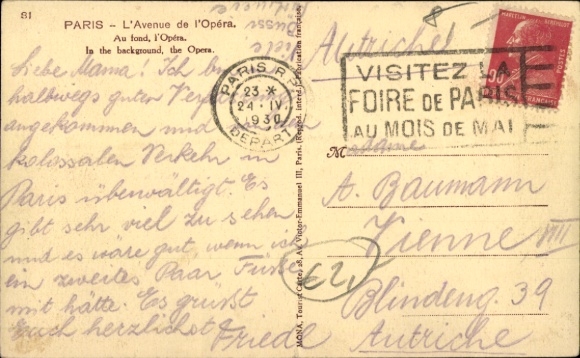 81
PARIS – L'Avenue de l'Opéra.
Au fond, l'Opéra.
In the background, the Opera.
Liebe Mama! Ich bin
halbwegs guter
angekommen und
kolossalen Verkehr in
Paris überwältigt. Es
gibt sehr viel zu sehen
und es wäre gut, wenn ich
ein zweites Paar Füße
mit hätte. Es grüsst
Euch herzlichst Friedl
MONA, Tourist Cartes, 28, Av. Victor-Emmanuel III, Paris. (Regd. intern.) Reproduction française.
Bussi
PARIS R.
23 *
24 · IV
1930
DEPART
VISITEZ LA
FOIRE DE PARIS
AU MOIS DE MAI
50
Autriche
Madame
A. Baumann
Vienne VIII
Blindeng. 39
Autriche
€2,